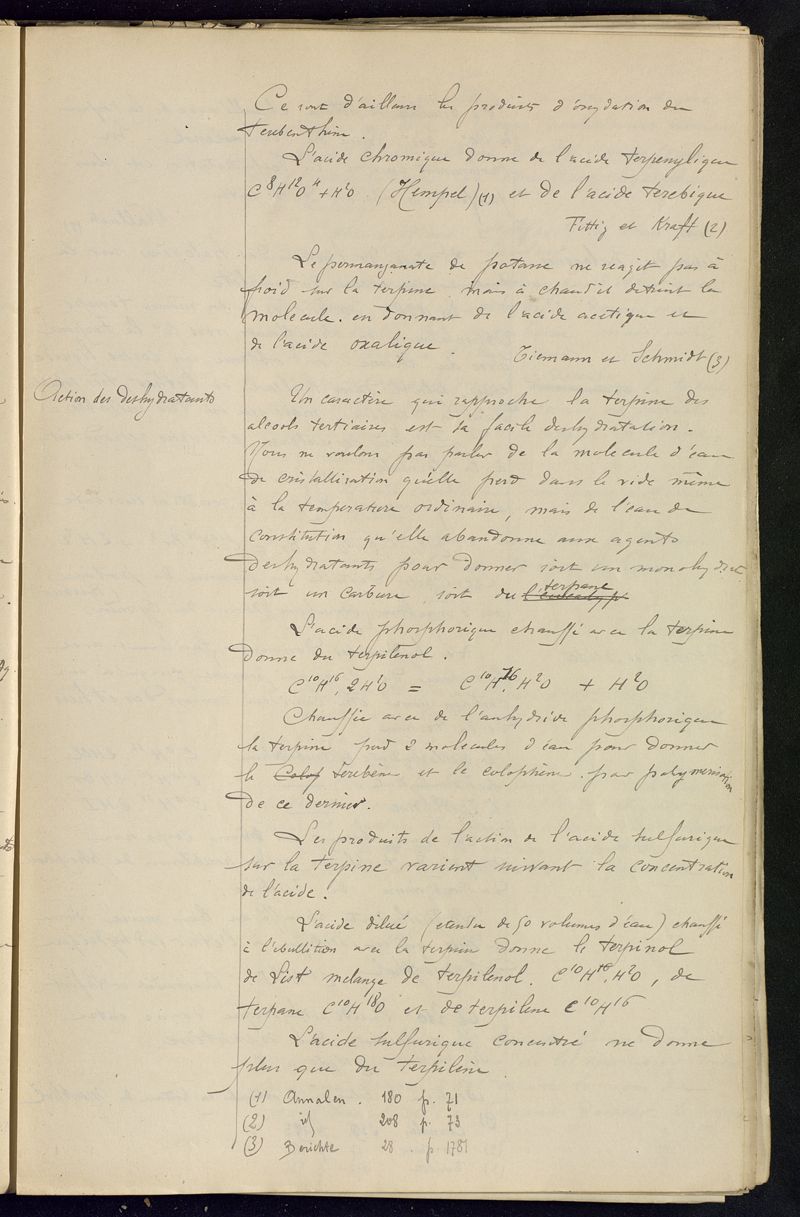 Ce sont d'ailleurs les produits d'oxydation du
terebenthène.
L'acide chromique donne de l'acide terpenylique
C⁸H¹²O⁴ + H²O (Hempel) (1) et de l'acide terebique
Fittig et Kraft (2)
Le permanganate de potasse ne reagit pas à
froid sur la terpine mais à chaud il detruit la
molecule. en donnant de l'acide acetique et
de l'acide oxalique.
Tiemann et Schmidt (3)
Action des deshydratants
Un caractère qui rapproche la terpine des
alcools tertiaires est sa facile deshydratation.
Nous ne voulons pas parler de la molecule d'eau
de cristallisation qu'elle perd dans le vide même
à la temperature ordinaire, mais de l'eau de
constitution qu'elle abandonne aux agents
deshydratants pour donner soit un monohydrate
soit un carbure soit du terpane
L'acide phosphorique chauffé avec la terpine
donne du terpilenol.
C¹⁰H¹⁶, 2H²O = C¹⁰H¹⁶, H²O + H²O
Chauffée avec de l'anhydride phosphorique
la terpine perd 2 molecules d'eau pour donner
le Colof terebène et le colophène. par polymerisation
de ce dernier.
Les produits de l'action de l'acide sulfurique
sur la terpine varient suivant la concentration
de l'acide.
L'acide dilué (etendu de 50 volumes d'eau) chauffé
à l'ebullition avec la terpine donne le terpinol
de List melange de terpilenol. C¹⁰H¹⁶, H²O, de
terpane C¹⁰H¹⁸O et de terpilene C¹⁰H¹⁶
L'acide sulfurique concentré ne donne
plus que du terpilène
(1) Annalen. 180 p. 71
(2) id 208 p. 73
(3) Berichte 28. p 1781